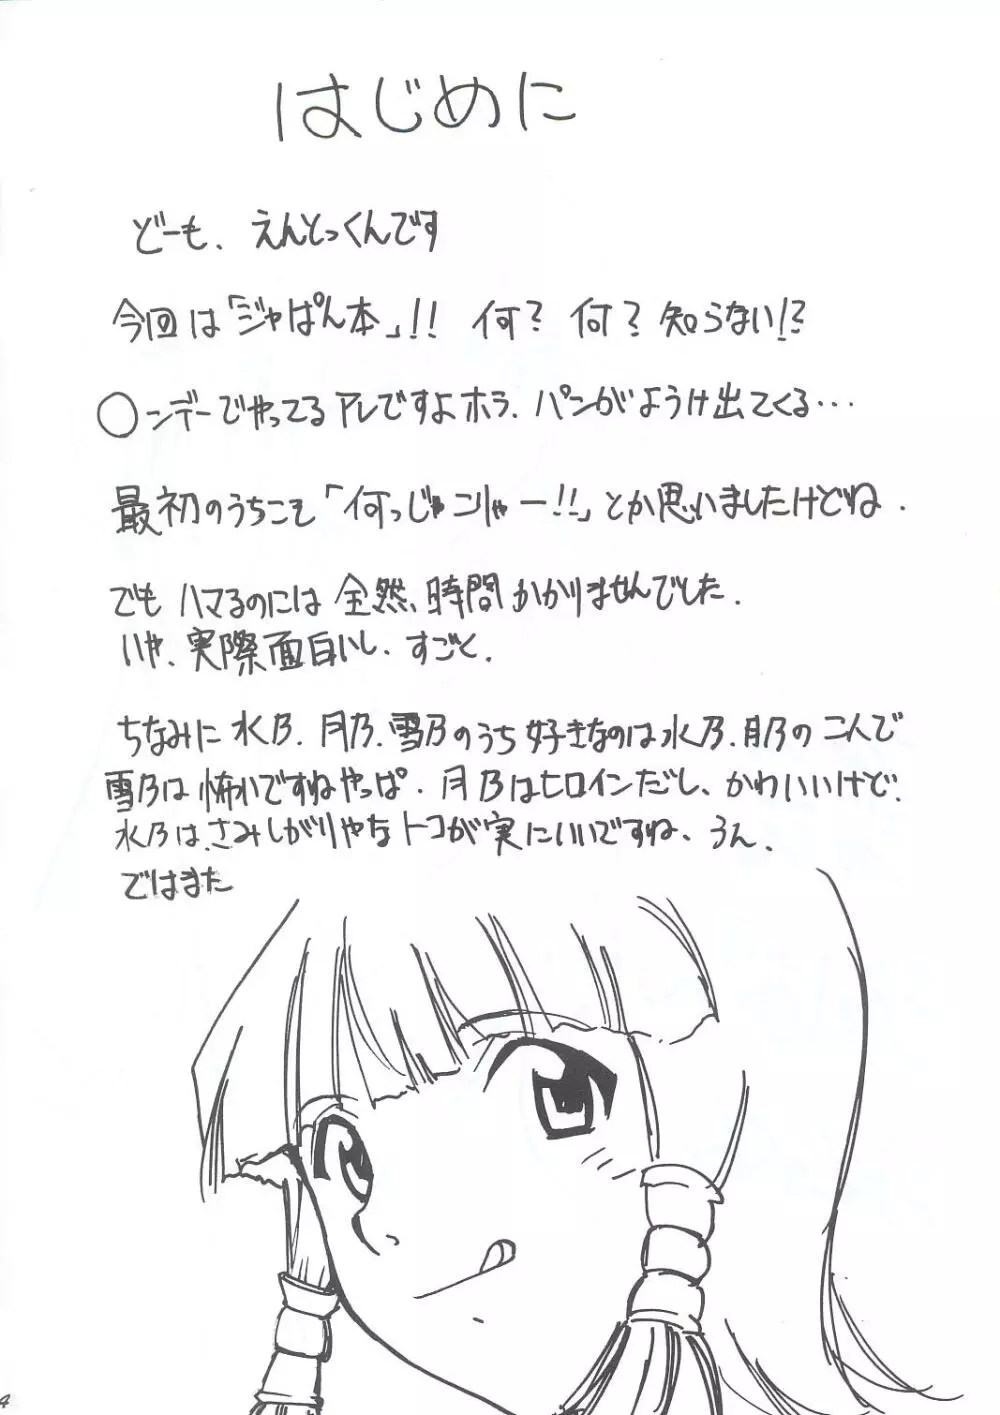 はじめに
どーも、えんとっくんです
今回は「ジャぱん本」!! 何? 何? 知らない!?
◯ンデーでやってるアレですよホラ、パンがようけ出てくる…
最初のうちこそ「何っじゃこりゃー!!」とか思いましたけどね.
でもハマるのには全然、時間かかりませんでした.
いや、実際面白いし、すごく.
ちなみに水乃、月乃、雪乃のうち好きなのは水乃、月乃のこんで
雪乃は怖いですねやっぱ. 月乃はヒロインだし、かわいいけど、
水乃は、さみしがりやなトコが実にいいですね、うん.
ではまた
4